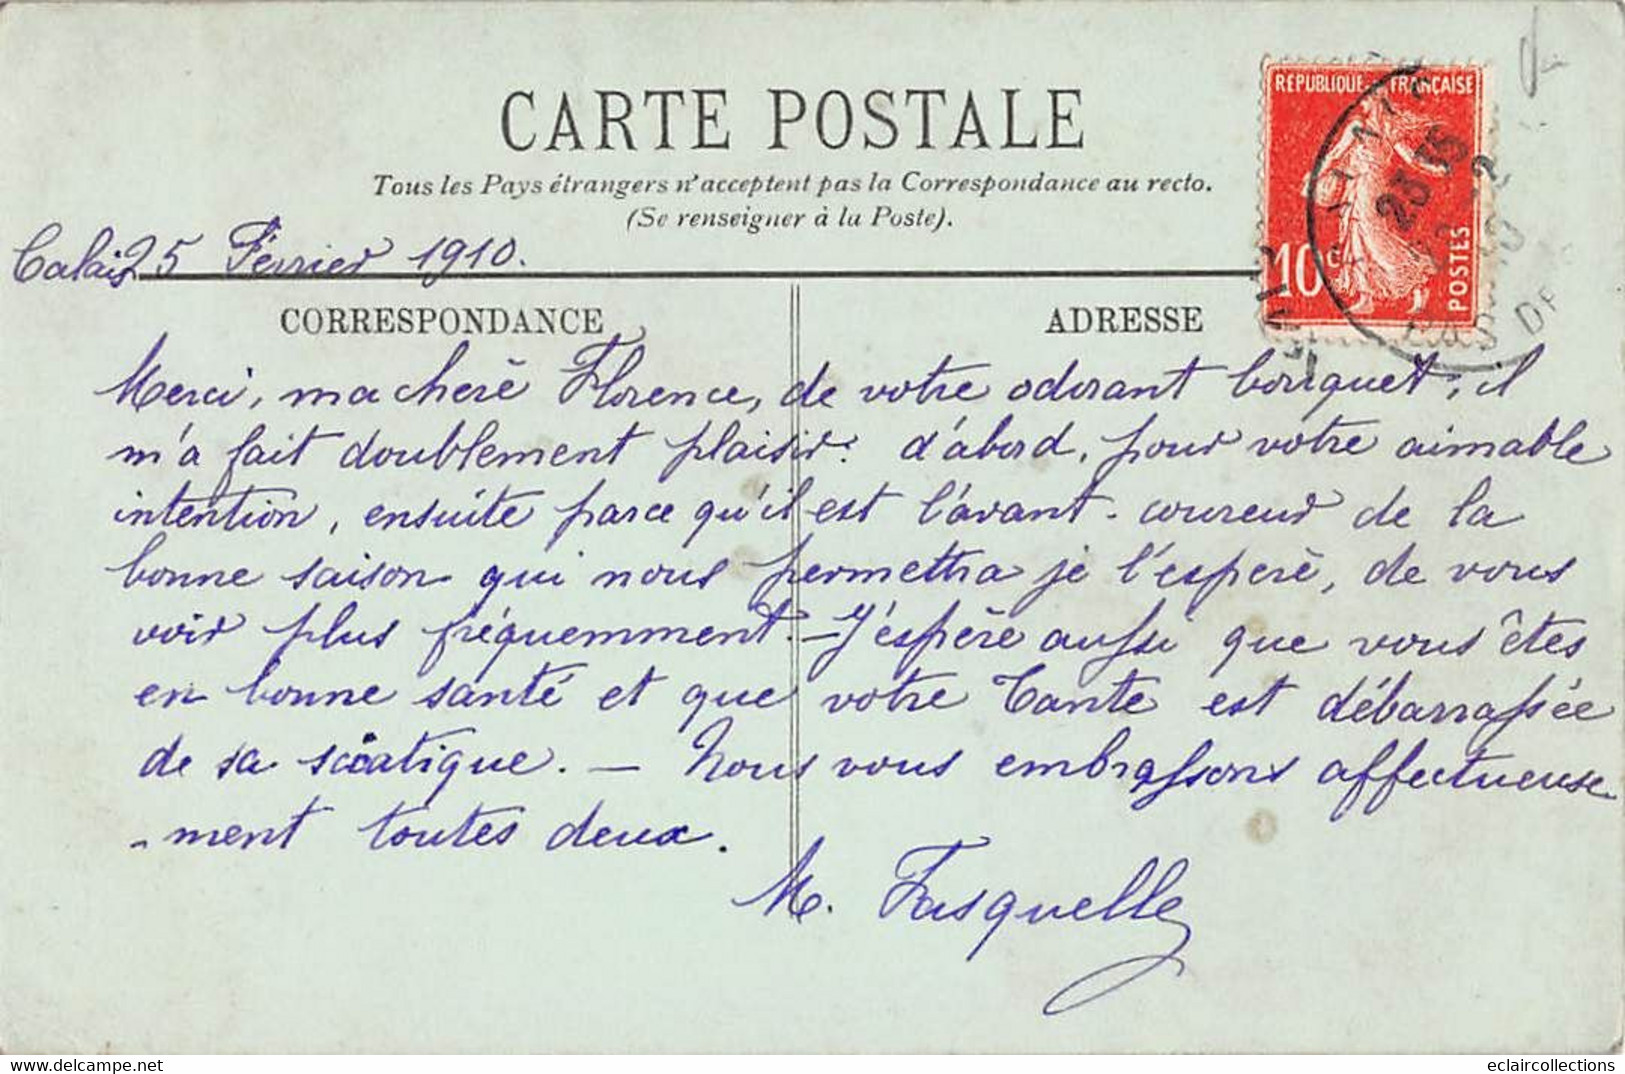 CARTE POSTALE
Tous les Pays étrangers n'acceptent pas la Correspondance au recto.
(Se renseigner à la Poste).
RÉPUBLIQUE FRANÇAISE
10 c
POSTES
23 35
PAS DE
Calais 25 Février 1910.
CORRESPONDANCE
ADRESSE
Merci, ma cherè Florence, de votre odorant bouquet; il
m'a fait doublement plaisir: d'abord, pour votre aimable
intention, ensuite parce qu'il est l'avant-coureur de la
bonne saison qui nous permettra je l'esperè, de vous
voir plus fréquemment. — J'espère aussi que vous êtes
en bonne santé et que votre Tante est débarrassée
de sa sciatique. — Nous vous embrassons affectueuse
-ment toutes deux.
M. Fasquelle
delcampe.net
eclaircollections